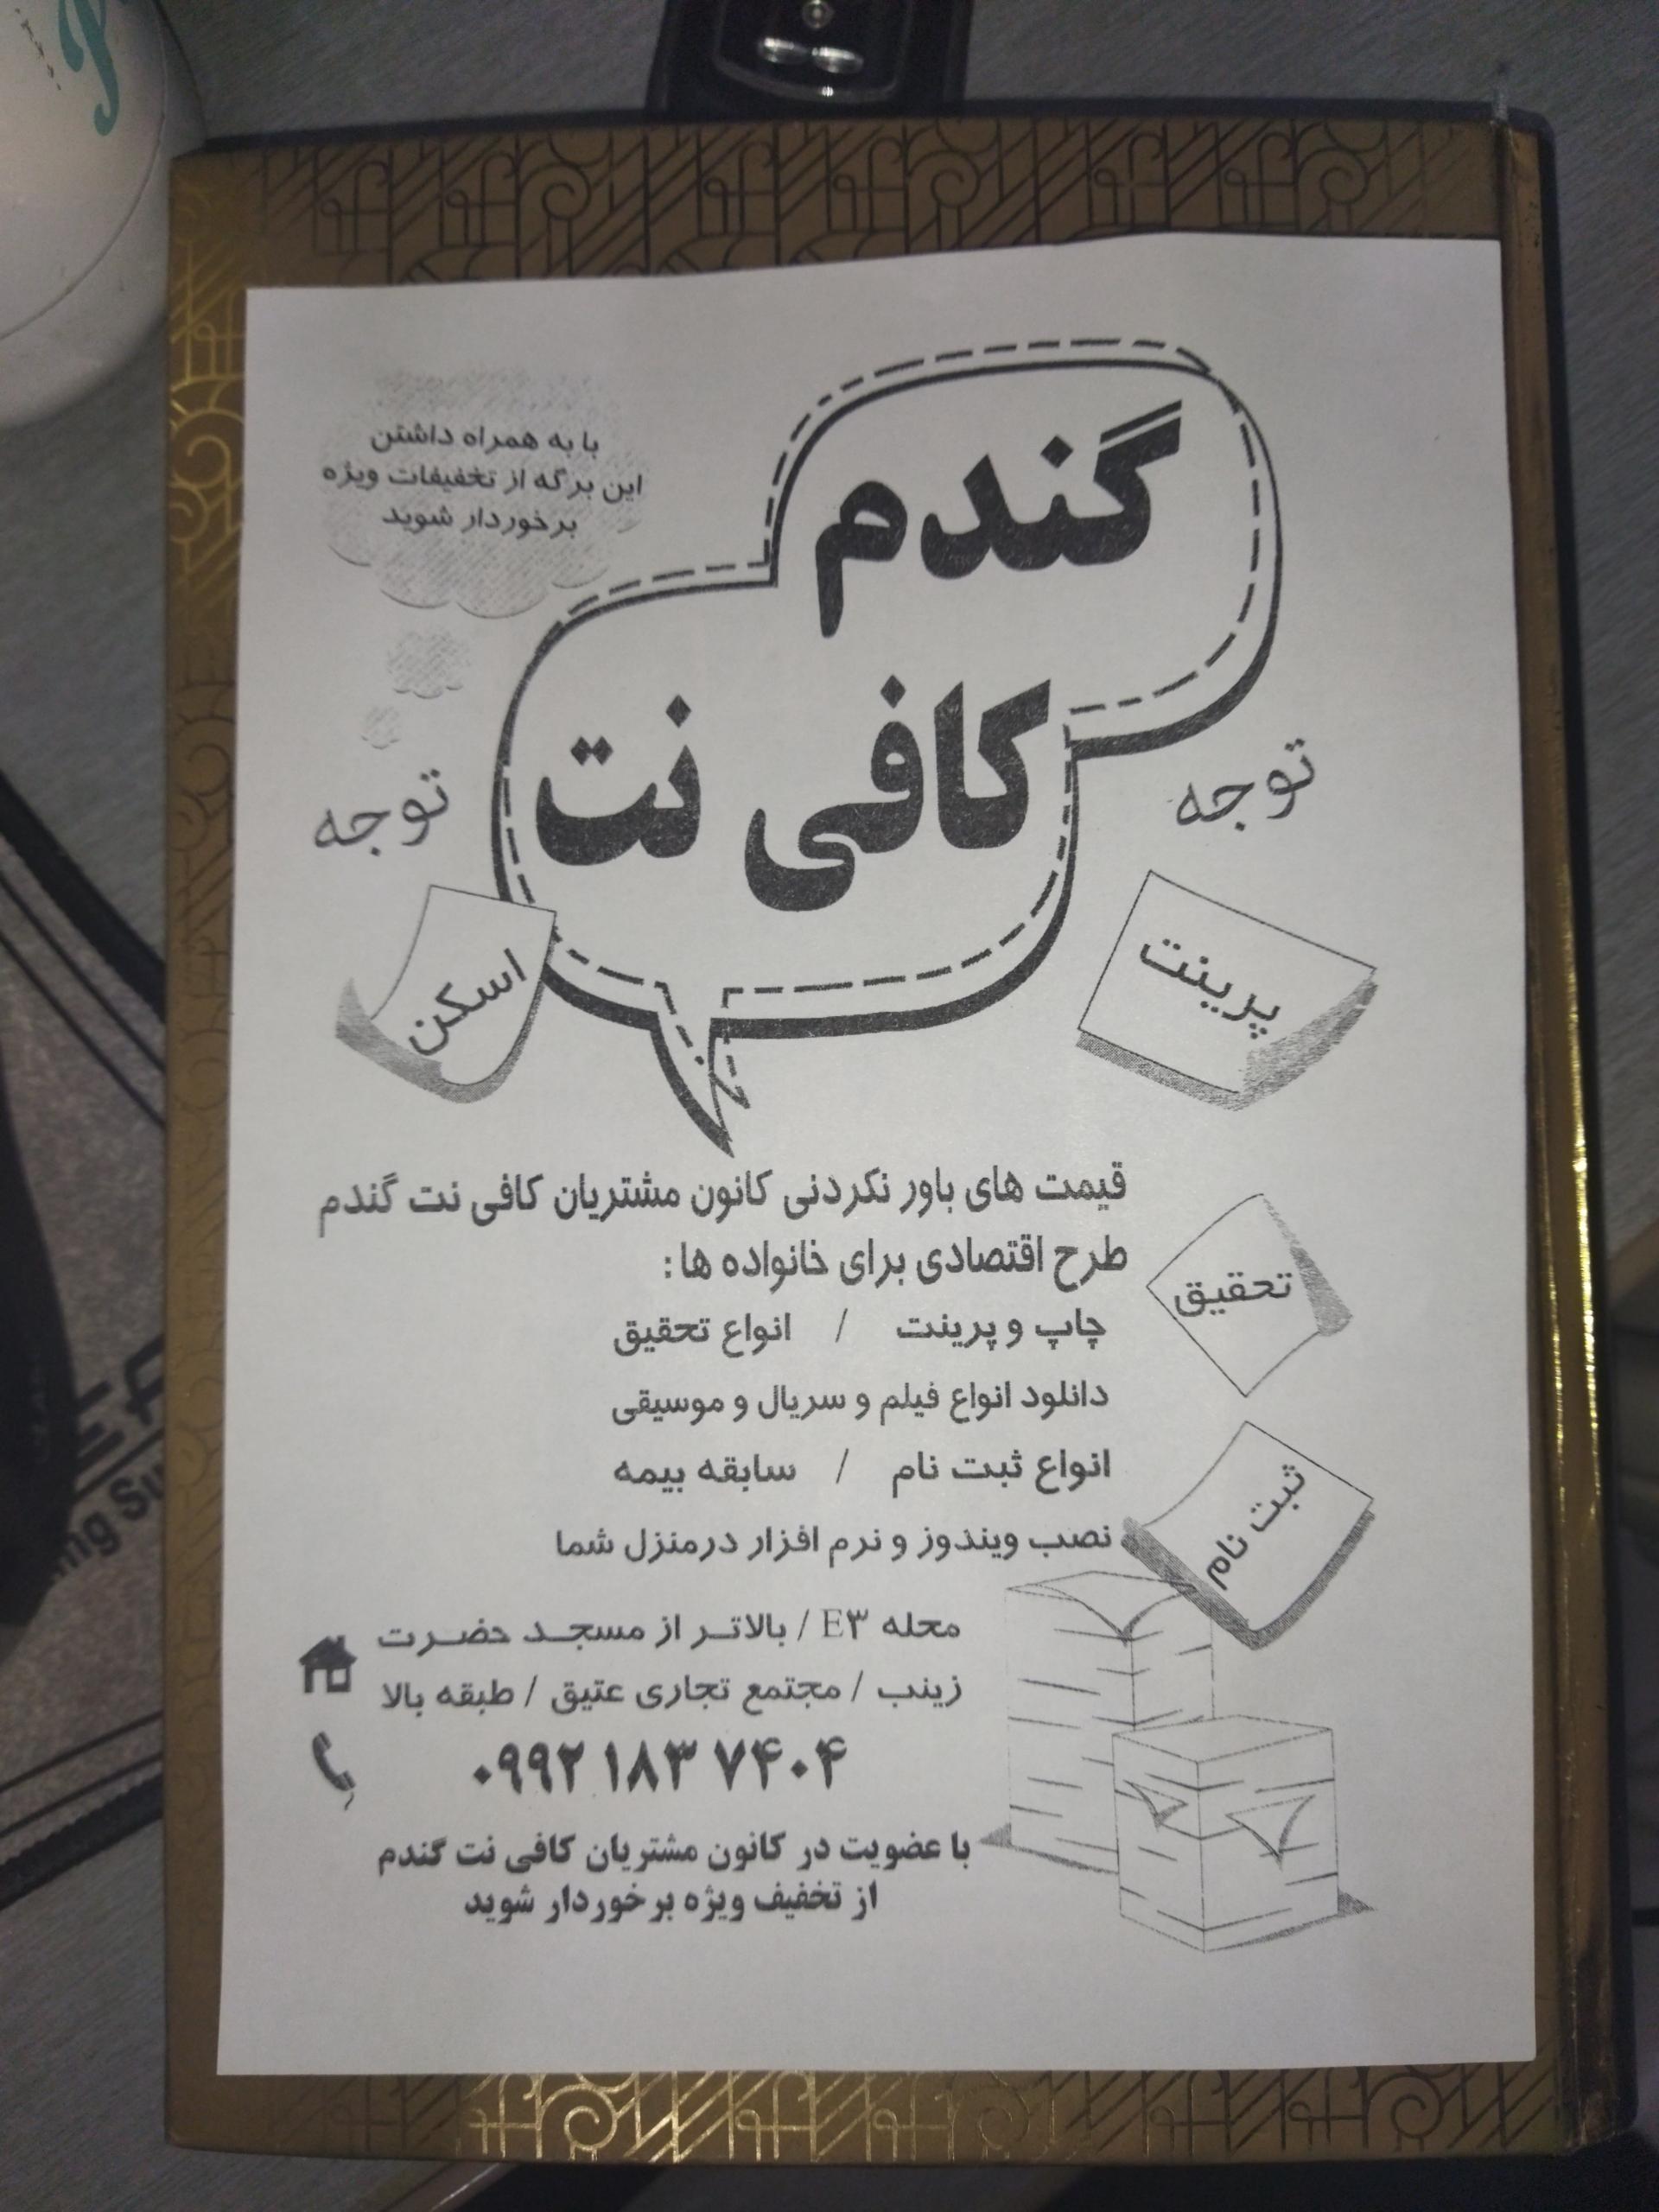 با به همراه داشتن
این برگه از تخفیفات ویژه
برخوردار شوید
گندم
کافی نت
توجه
توجه
پرینت
اسکن
قیمت های باور نکردنی کانون مشتریان کافی نت گندم
طرح اقتصادی برای خانواده ها:
تحقیق
چاپ و پرینت / انواع تحقیق
دانلود انواع فیلم و سریال و موسیقی
انواع ثبت نام / سابقه بیمه
ثبت نام
نصب ویندوز و نرم افزار درمنزل شما
محله E۳ / بالاتر از مسجد حضرت
زینب / مجتمع تجاری عتیق / طبقه بالا
۰۹۹۲ ۱۸۳ ۷۴۰۴
با عضویت در کانون مشتریان کافی نت گندم
از تخفیف ویژه برخوردار شوید